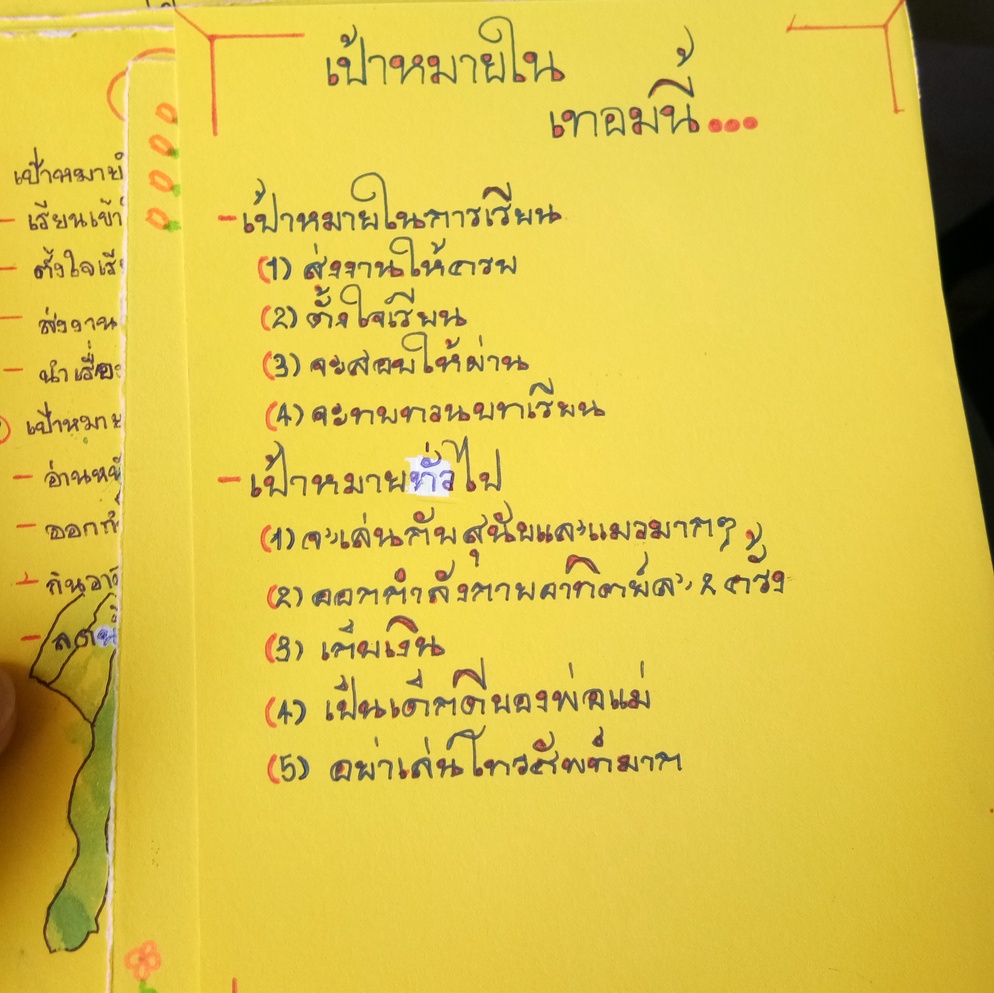 เป้าหมายใน
เทอมนี้...
-เป้าหมายในการเรียน
(1) ส่งงานให้ครบ
(2) ตั้งใจเรียน
(3) จะสอบให้ผ่าน
(4) จะทบทวนบทเรียน
-เป้าหมายทั่วไป
(1) จะเล่นกับสุนัขและแมวมากๆ
(2) ออกกำลังกายอาทิตย์ละ 2 ครั้ง
(3) เก็บเงิน
(4) เป็นเด็กดีของพ่อแม่
(5) อย่าเล่นโทรศัพท์มาก
เป้าหมาย
- เรียนเข้า
- ตั้งใจเรี
- ส่งงาน
- นำเรื่อง
เป้าหมาย
- อ่านหนั
- ออกกำ
- กินอา
- ลดน้ำ